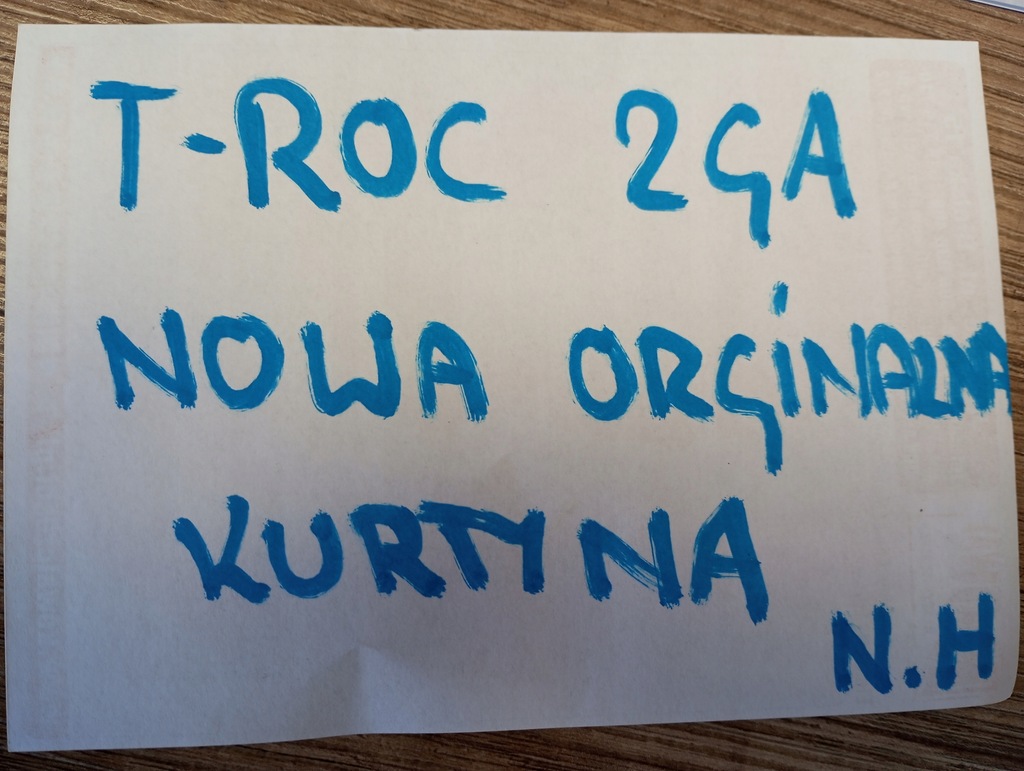 T-ROC 2GA
NOWA ORGINALNA
KURTYNA
N.H